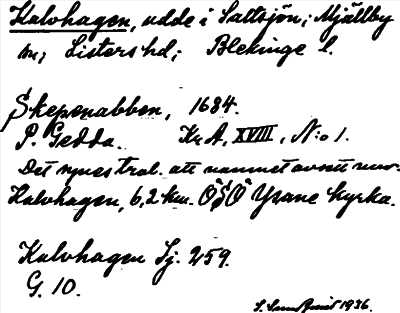 Kalvhagen, udde i Saltsjön; Mjällby
sn; Listers hd; Blekinge l.
Skepsnabben, 1684.
P. Gedda. Kr A, XVIII, N:o 1.
Det synes trol. att namnet avsett nuv.
Kalvhagen, 6,2 km. ÖSÖ Ysane kyrka.
Kalvhagen Sj. 259.
G. 10.
1936.